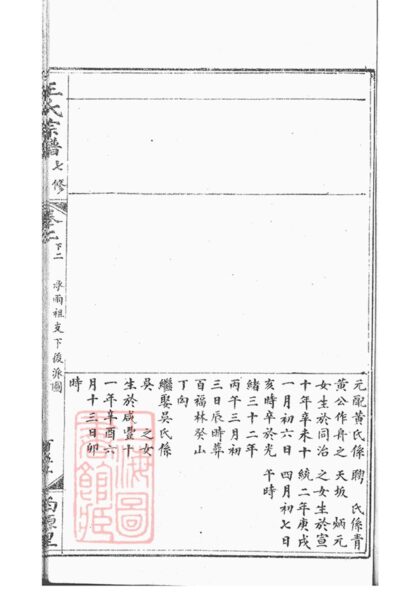 元配黃氏係
黃公作舟之
女生於同治
十年辛未十
一月初六日
亥時卒於光
緒三十二年
丙午三月初
三日辰時葬
百福林癸山
丁向
繼娶吳氏係
吳 之女
生於咸豐十
一年辛酉六
月十三日卯
時
聯 氏係青
天坂 炳元
之女生於宣
統二年庚戌
四月初七日
午時
王氏宗譜 七修
下二
祖支下後派圖